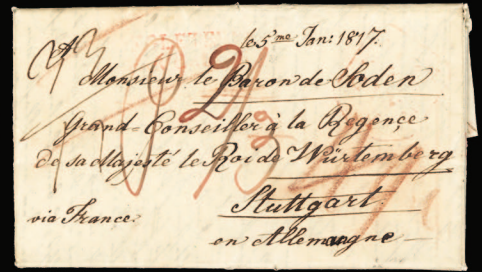 le 5me Jan: 1817.
A
Monsieur le Baron de Soden
Grand-Conseiller à la Regençe
de sa Majesté le Roi de Würtemberg
Stuttgart.
via France.
en Allemangne